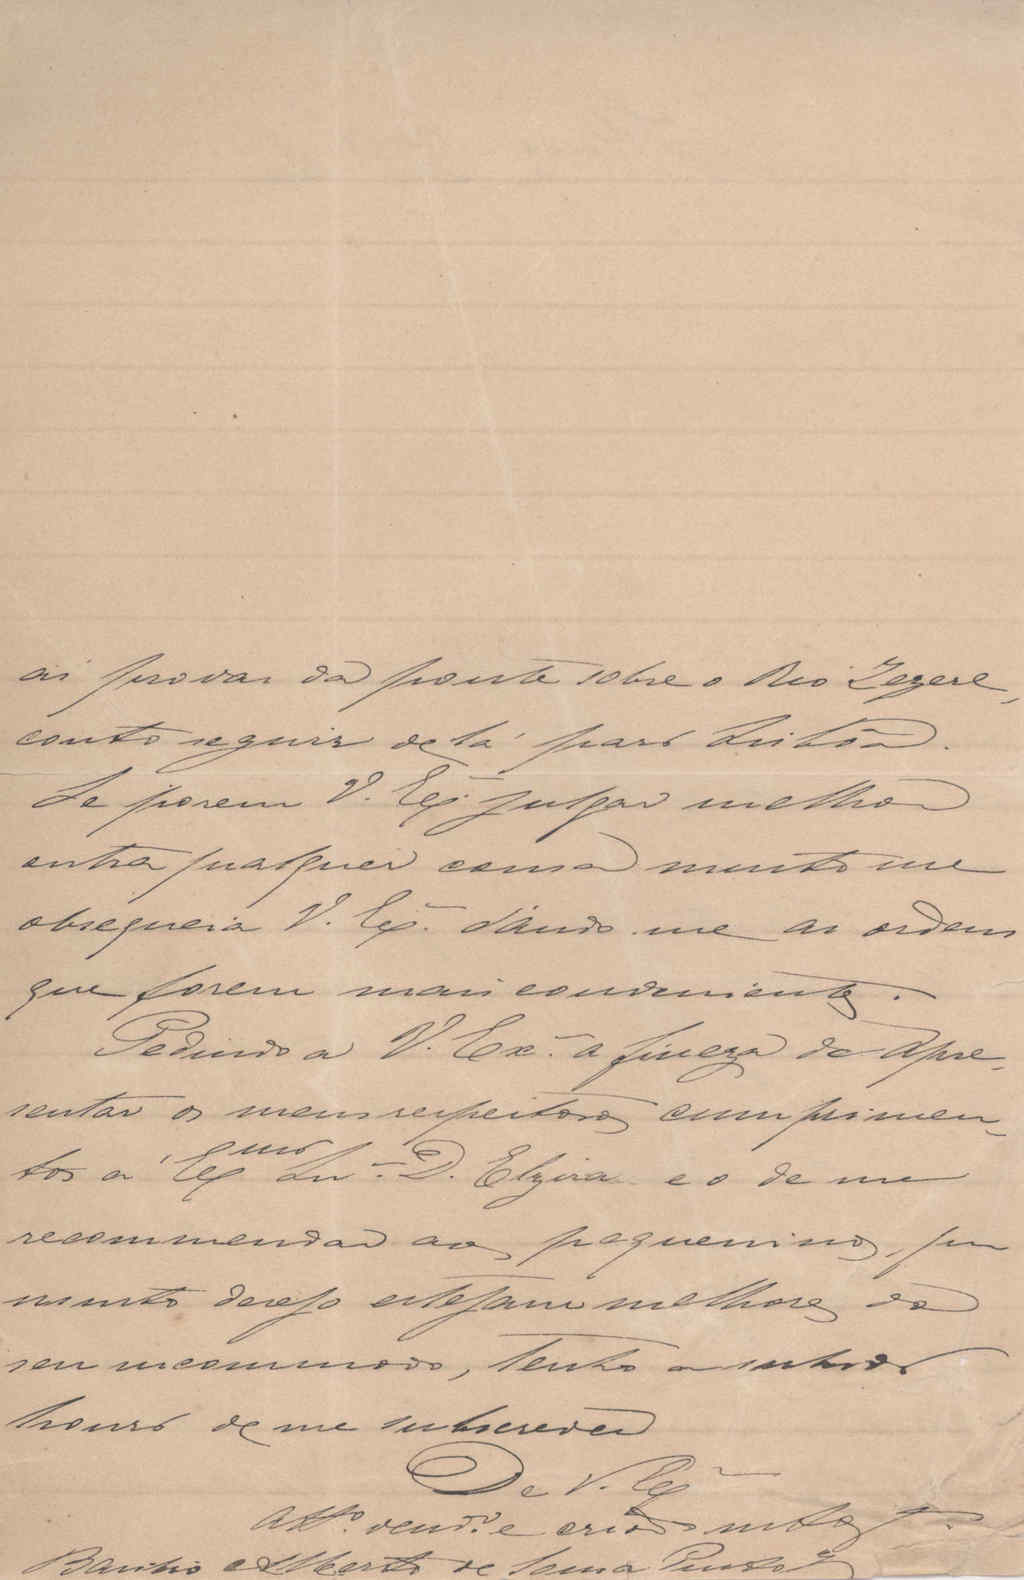 ás provas da ponte sobre o Rio Zezere,
conto seguir de lá para Lisbôa.
Se porem V. Exª julgar melhor
outra qualquer cousa muito me
obsequeia V. Exª. dando-me as ordens
que forem mais convenientes.
Pedindo a V. Exª. a fineza de apre-
sentar os meus respeitosos cumprimen-
tos á Exma Snrª. D. Elzira e o de me
recommendar aos pequeninos, que
muito desejo estejam melhores do
seu incommodo, tenho a subida
honra de me subscrever
De V. Exª
Attº. venr. e criado
Basilio Alberto de Sousa Pinto